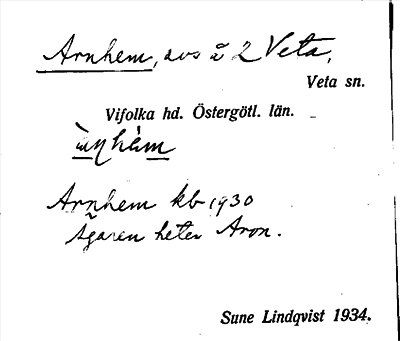 Arnhem, avs å 2 Veta,
Veta sn.
Vifolka hd. Östergötl. län.
Arnhem kb 1930
Ägaren heter Aron.
Sune Lindqvist 1934.